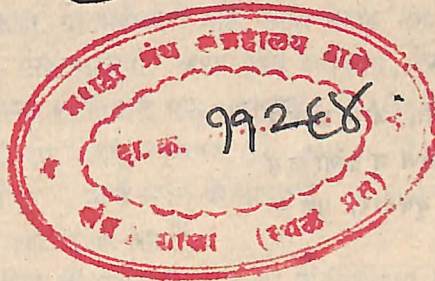 मराठी ग्रंथ संग्रहालय ठाणे
दा. क. ११२९४
शाखा (स्थळ प्रत)